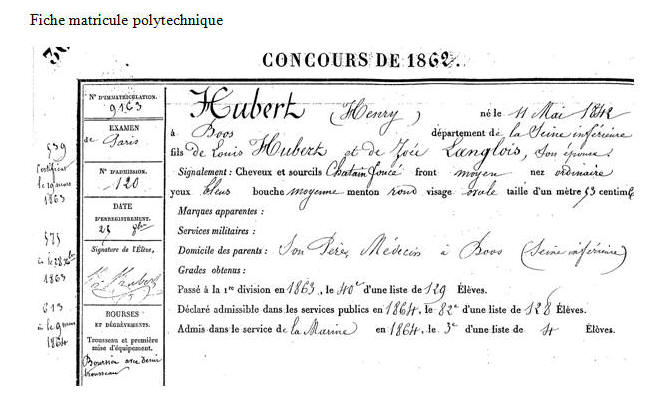 Fiche matricule polytechnique
CONCOURS DE 1862.
N° D'IMMATRICULATION.
9163
EXAMEN
de Paris
N° D'ADMISSION.
120
DATE
D'ENREGISTREMENT.
Signature de l'Élève,
Hubert
BOURSES
ET DÉGRÈVEMENTS.
Trousseau et première
mise d'équipement.
Boursier avec demi
trousseau
539
1863
575
1863
613
1864
Hubert (Henry) né le 11 Mai 1842
à Boos département de la Seine inférieure
fils de Louis Hubert et de Zoée Langlois, son épouse.
Signalement : Cheveux et sourcils Chatain foncé front moyen nez ordinaire
yeux bleus bouche moyenne menton rond visage ovale taille d'un mètre 53 centim
Marques apparentes :
Services militaires :
Domicile des parents : Son Père, Médecin à Boos (Seine inférieure)
Grades obtenus :
Passé à la 1re division en 1863, le 40e d'une liste de 129 Élèves.
Déclaré admissible dans les services publics en 1864, le 82e d'une liste de 128 Élèves.
Admis dans le service de la Marine en 1864, le 3e d'une liste de 4 Élèves.